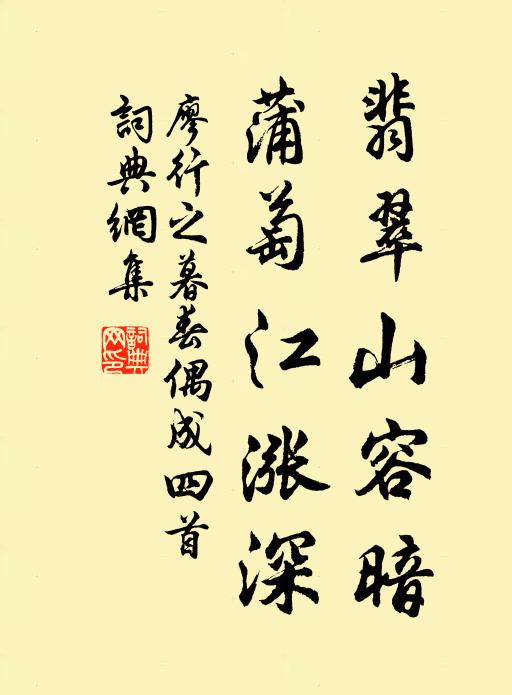 翡翠山容暗
蒲萄江漲深
廖行之暮春偶成四首
詞典網集
詞典網印